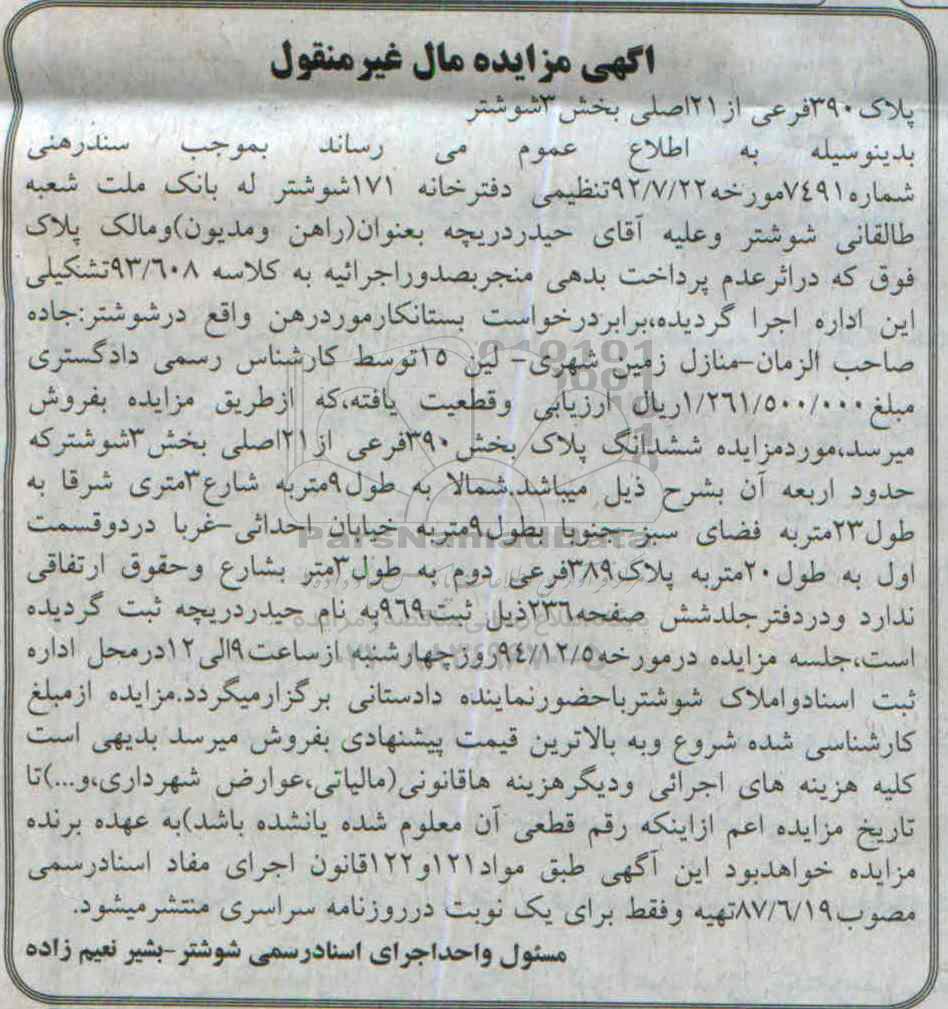 آگهی مزایده مال غیرمنقول
پلاک۳۹۰فرعی از۲۱اصلی بخش۳شوشتر
بدینوسیله به اطلاع عموم می رساند بموجب سندرهنی
شماره۷٤۹۱مورخه۹۲/۷/۲۲تنظیمی دفترخانه ۱۷۱شوشتر له بانک ملت شعبه
طالقانی شوشتر وعلیه آقای حیدردریچه بعنوان(راهن ومدیون)ومالک پلاک
فوق که دراثرعدم پرداخت بدهی منجربصدوراجرائیه به کلاسه ۹۳/٦۰۸تشکیلی
این اداره اجرا گردیده،برابردرخواست بستانکارموردرهن واقع درشوشتر:جاده
صاحب الزمان-منازل زمین شهری- لین ۱٥توسط کارشناس رسمی دادگستری
مبلغ۱/۲٦۱/٥۰۰/۰۰۰ریال ارزیابی وقطعیت یافته،که ازطریق مزایده بفروش
میرسد،موردمزایده ششدانگ پلاک بخش۳۹۰فرعی از۲۱اصلی بخش۳شوشترکه
حدود اربعه آن بشرح ذیل میباشد.شمالا به طول۹متربه شارع۳متری شرقا به
طول۲۳متربه فضای سبز-جنوبا بطول۹متربه خیابان احداثی-غربا دردوقسمت
ParsNamadData
اول به طول۲۰متربه پلاک۳۸۹فرعی دوم به طول۳متر بشارع وحقوق ارتفاقی
ندارد ودردفترجلدشش صفحه۲۳٦ذیل ثبت۹٦۹به نام حیدردریچه ثبت گردیده
است،جلسه مزایده درمورخه۹٤/۱۲/٥روزچهارشنبه ازساعت۹الی۱۲درمحل اداره
ثبت اسنادواملاک شوشترباحضورنماینده دادستانی برگزارمیگردد.مزایده ازمبلغ
کارشناسی شده شروع وبه بالاترین قیمت پیشنهادی بفروش میرسد بدیهی است
کلیه هزینه های اجرائی ودیگرهزینه هاقانونی(مالیاتی،عوارض شهرداری،و...)تا
تاریخ مزایده اعم ازاینکه رقم قطعی آن معلوم شده یانشده باشد)به عهده برنده
مزایده خواهدبود این آگهی طبق مواد۱۲۱و۱۲۲قانون اجرای مفاد اسنادرسمی
مصوب۸۷/٦/۱۹تهیه وفقط برای یک نوبت درروزنامه سراسری منتشرمیشود.
مسئول واحداجرای اسنادرسمی شوشتر-بشیر نعیم زاده